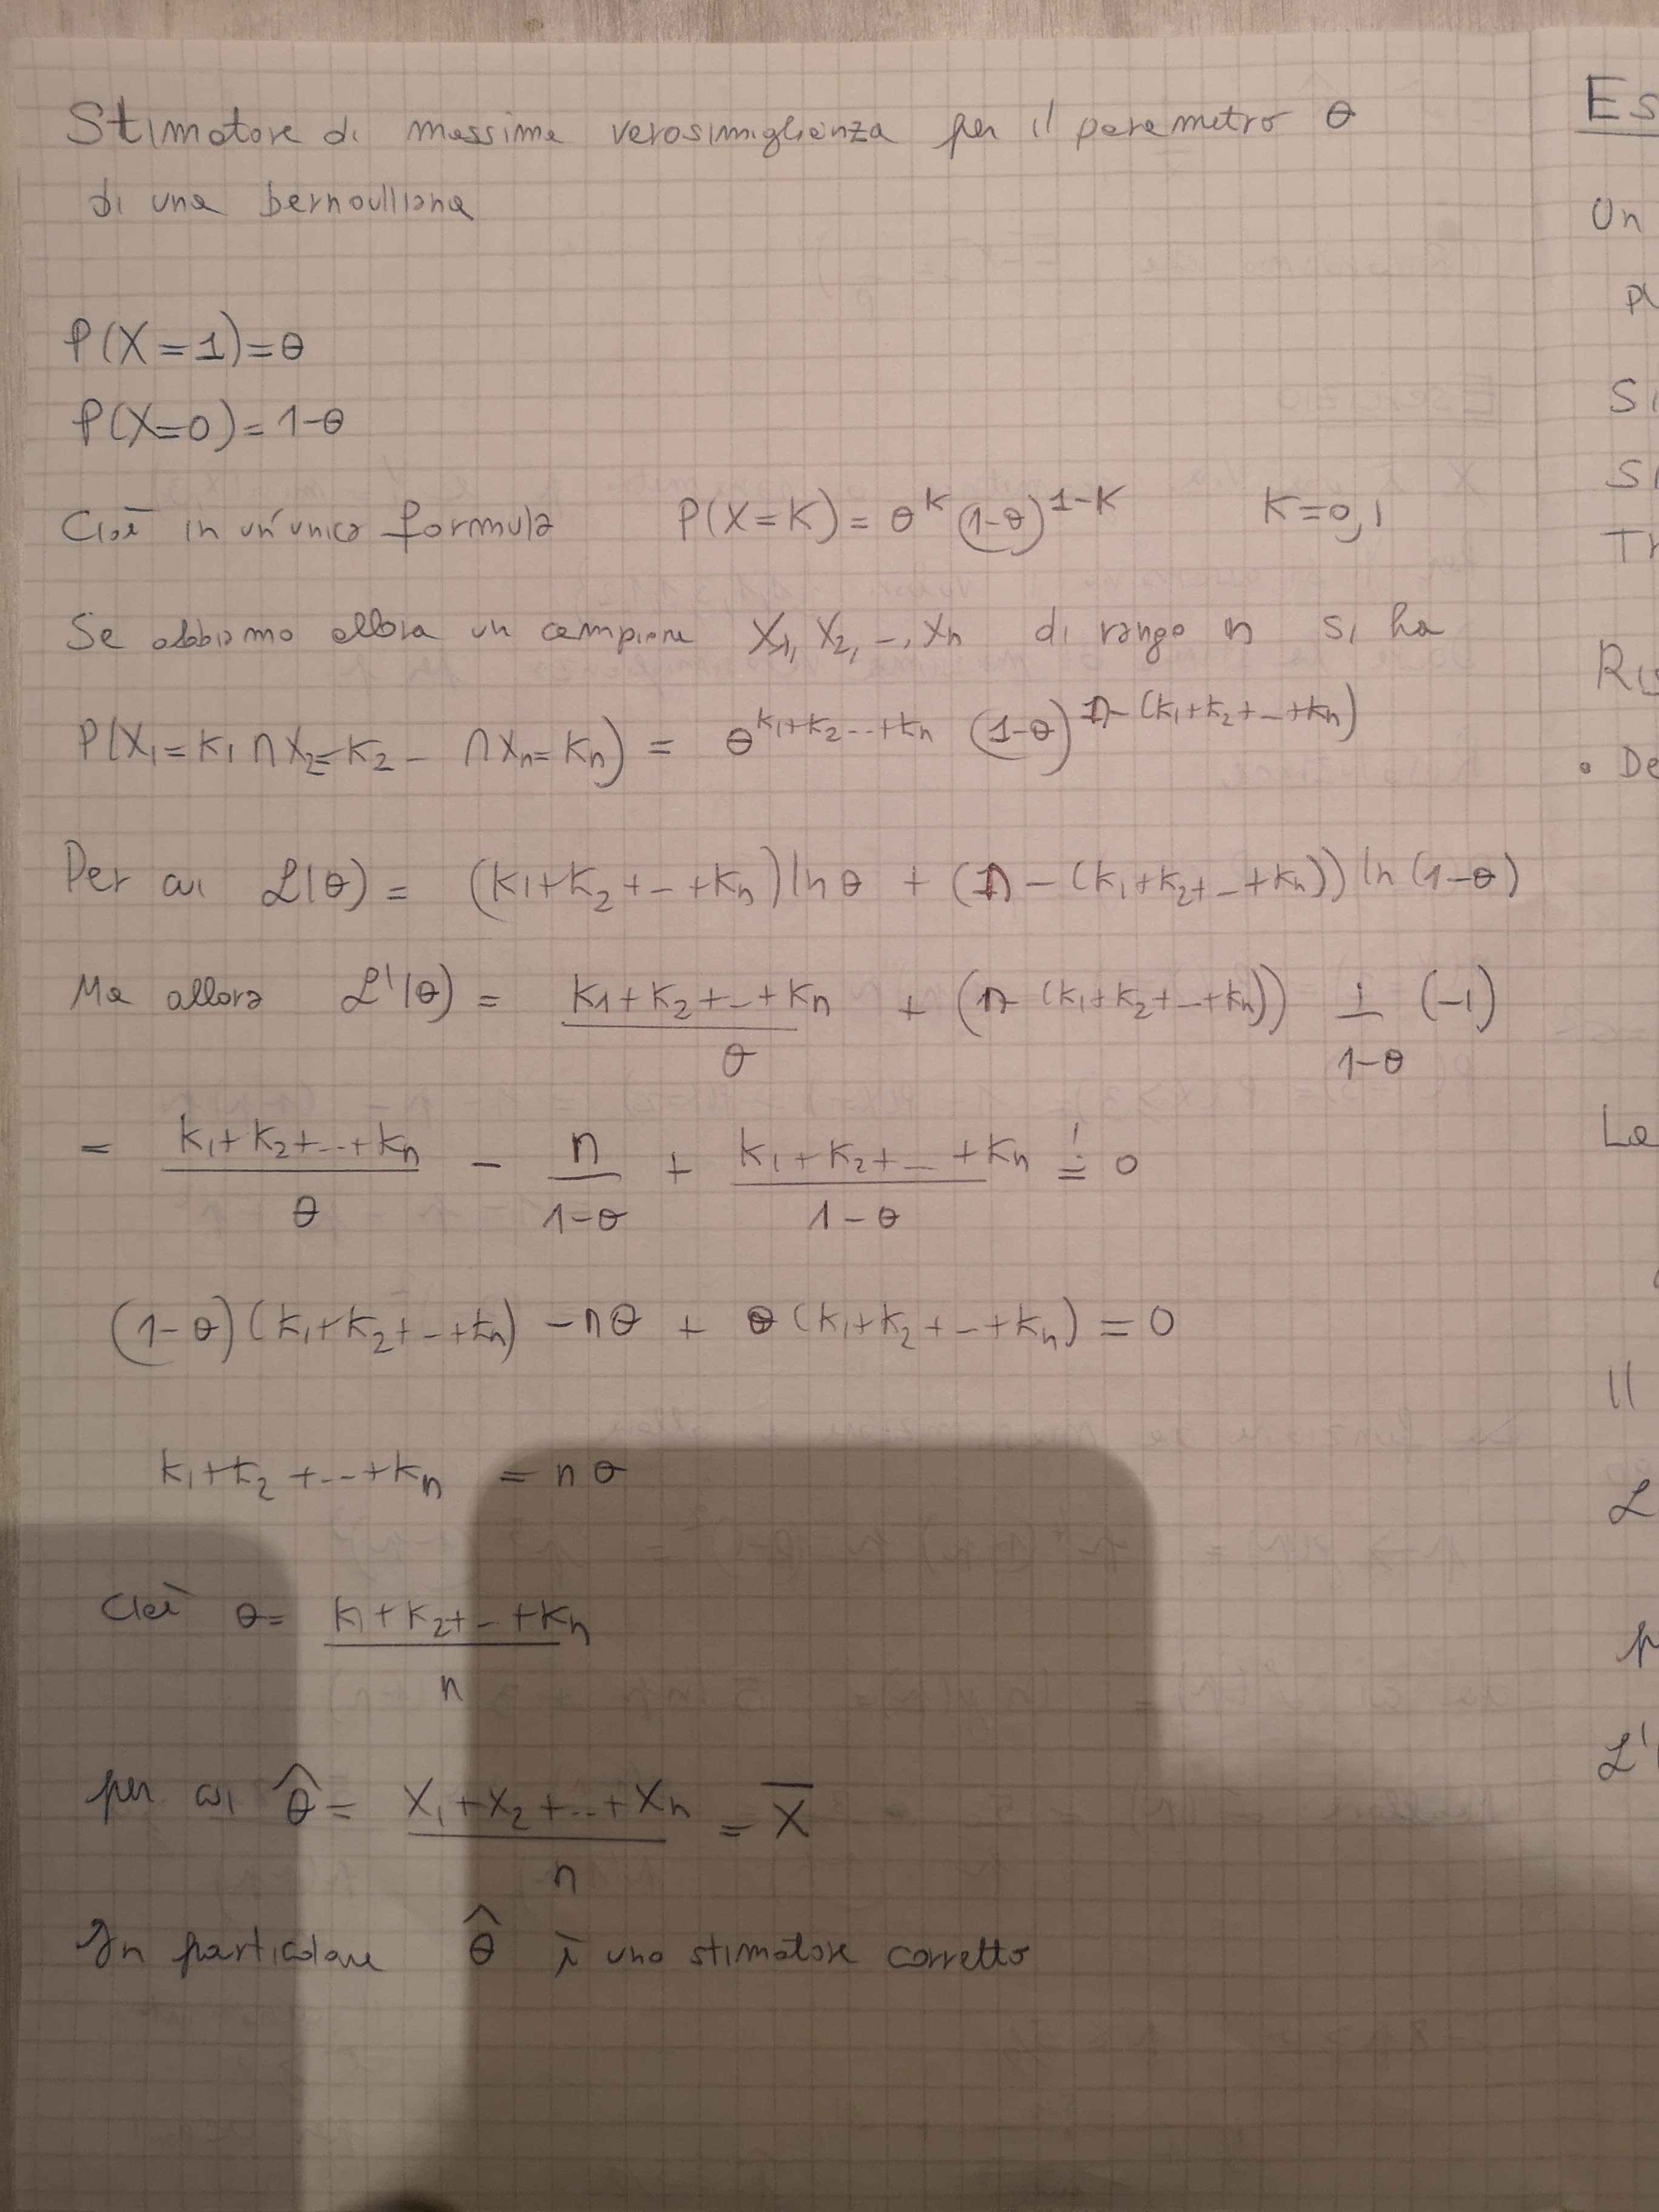 Stimatore di massima verosimiglianza per il parametro θ
di una bernoulliana
P(X=1)=θ
P(X=0)=1-θ
Cioè in un'unica formula P(X=K)=θ^k (1-θ)^{1-K} K=0,1
Se abbiamo allora un campione X1, X2, -, Xn di rango n si ha
P(X1=K1 ∩ X2=K2 - ∩ Xn=Kn) = θ^{k1+k2...+kn} (1-θ)^{n-(k1+k2+-+kn)}
Per cui ℒ(θ) = (K1+K2+-+Kn) ln θ + (n-(K1+K2+-+Kn)) ln (1-θ)
Ma allora ℒ'(θ) = \frac{K1+K2+-+Kn}{θ} + (n-(K1+K2+-+Kn)) \frac{1}{1-θ} (-1)
= \frac{K1+K2+-+Kn}{θ} - \frac{n}{1-θ} + \frac{K1+K2+-+Kn}{1-θ} =! 0
(1-θ)(K1+K2+-+Kn) -nθ + θ(K1+K2+-+Kn) = 0
K1+K2+--+Kn = nθ
Cioè θ= \frac{K1+K2+-+Kn}{n}
per cui θ̂ = \frac{X1+X2+..+Xn}{n} = X̄
In particolare θ̂ è uno stimatore corretto
Es
Un
Si
Ris
• De
La
Il
ℒ
ℒ'